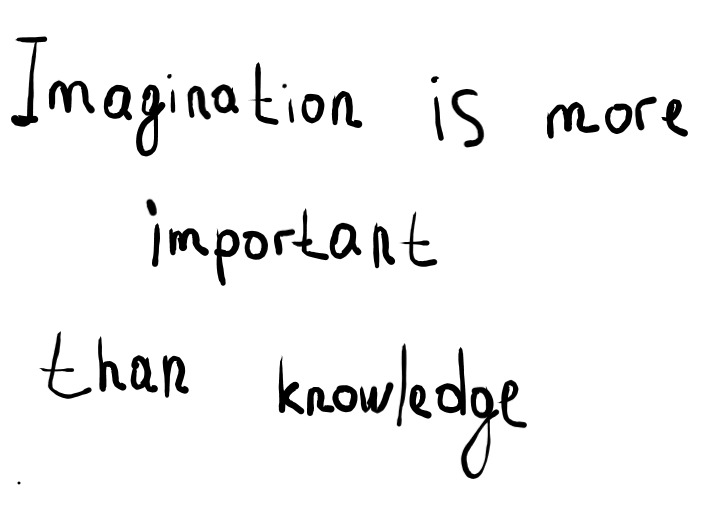 Imagination is more
important
than knowledge